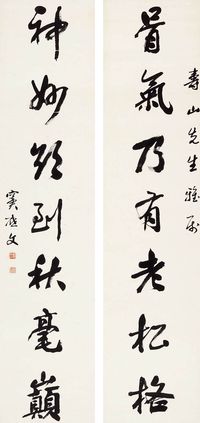 壽山先生雅屬
骨氣乃有老松格
神妙欲到秋毫巔